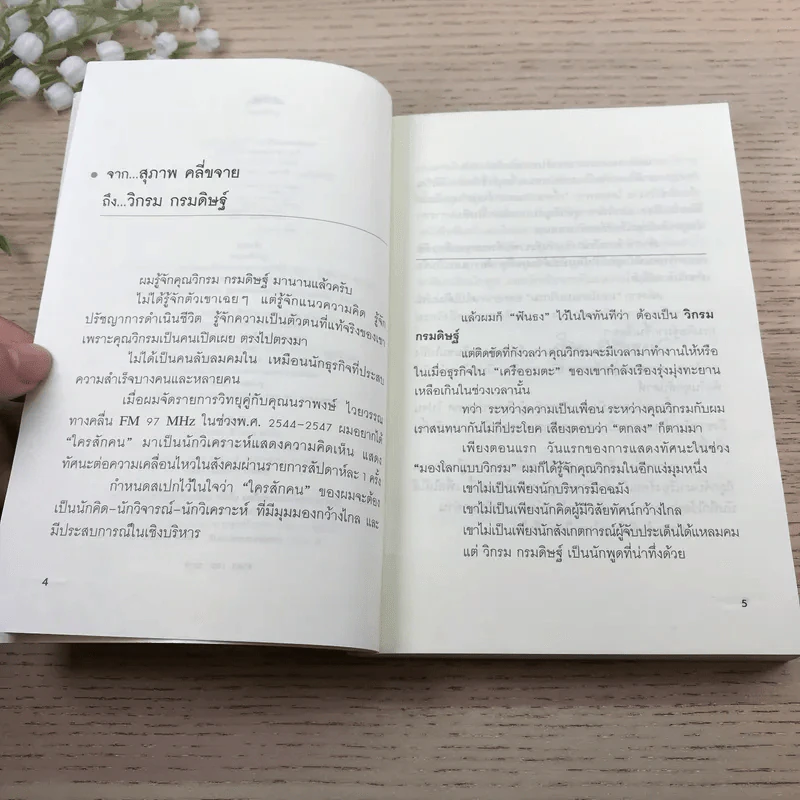 จาก...สุภาพ คลี่ขจาย
ถึง...วิกรม กรมดิษฐ์
ผมรู้จักคุณวิกรม กรมดิษฐ์ มานานแล้วครับ
ไม่ได้รู้จักตัวเขาเฉยๆ แต่รู้จักแนวความคิด รู้จัก
ปรัชญาการดำเนินชีวิต รู้จักความเป็นตัวตนที่แท้จริงของเขา
เพราะคุณวิกรมเป็นคนเปิดเผย ตรงไปตรงมา
ไม่ได้เป็นคนลับลมคมใน เหมือนนักธุรกิจที่ประสบ
ความสำเร็จบางคนและหลายคน
เมื่อผมจัดรายการวิทยุคู่กับคุณนราพงษ์ ไวยวรรณ
ทางคลื่น FM 97 MHz ในช่วงพ.ศ. 2544-2547 ผมอยากได้
"ใครสักคน" มาเป็นนักวิเคราะห์แสดงความคิดเห็น แสดง
ทัศนะต่อความเคลื่อนไหวในสังคมผ่านรายการสัปดาห์ละ 1 ครั้ง
กำหนดสเปกไว้ในใจว่า "ใครสักคน" ของผมจะต้อง
เป็นนักคิด-นักวิจารณ์-นักวิเคราะห์ ที่มีมุมมองกว้างไกล และ
มีประสบการณ์ในเชิงบริหาร
4
แล้วผมก็ "ฟันธง" ไว้ในใจทันทีว่า ต้องเป็น วิกรม
กรมดิษฐ์
แต่ติดขัดที่กังวลว่า คุณวิกรมจะมีเวลามาทำงานให้หรือ
ในเมื่อธุรกิจใน "เครืออมตะ" ของเขากำลังเรืองรุ่งมุ่งทะยาน
เหลือเกินในช่วงเวลานั้น
ทว่า ระหว่างความเป็นเพื่อน ระหว่างคุณวิกรมกับผม
เราสนทนากันไม่กี่ประโยค เสียงตอบว่า "ตกลง" ก็ตามมา
เพียงตอนแรก วันแรกของการแสดงทัศนะในช่วง
"มองโลกแบบวิกรม" ผมก็ได้รู้จักคุณวิกรมในอีกแง่มุมหนึ่ง
เขาไม่เป็นเพียงนักบริหารมือฉมัง
เขาไม่เป็นเพียงนักคิดผู้มีวิสัยทัศน์กว้างไกล
เขาไม่เป็นเพียงนักสังเกตการณ์ผู้จับประเด็นได้แหลมคม
แต่ วิกรม กรมดิษฐ์ เป็นนักพูดที่น่าทึ่งด้วย
5